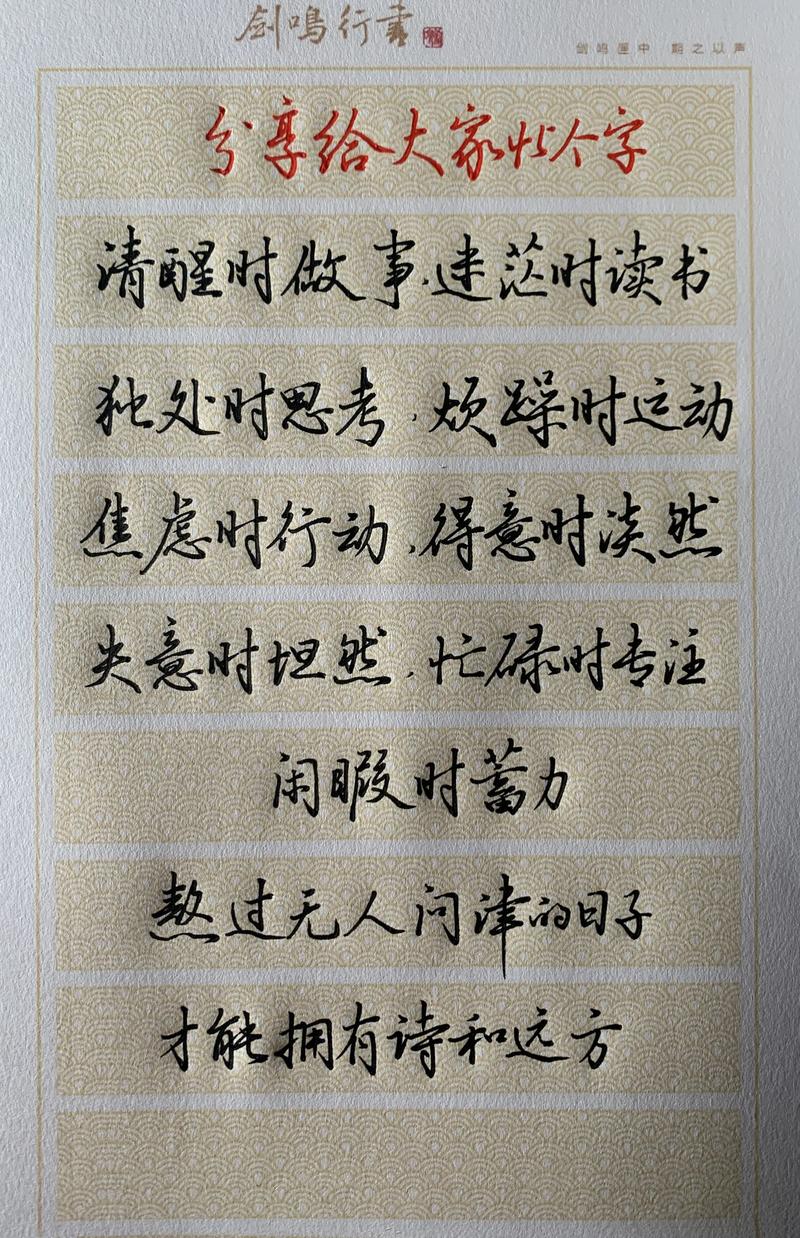 剑鸣行书
剑鸣匣中 期之以声
分享给大家忙个字
清醒时做事，迷茫时读书
独处时思考，烦躁时运动
焦虑时行动，得意时淡然
失意时坦然，忙碌时专注
闲暇时蓄力
熬过无人问津的日子
才能拥有诗和远方